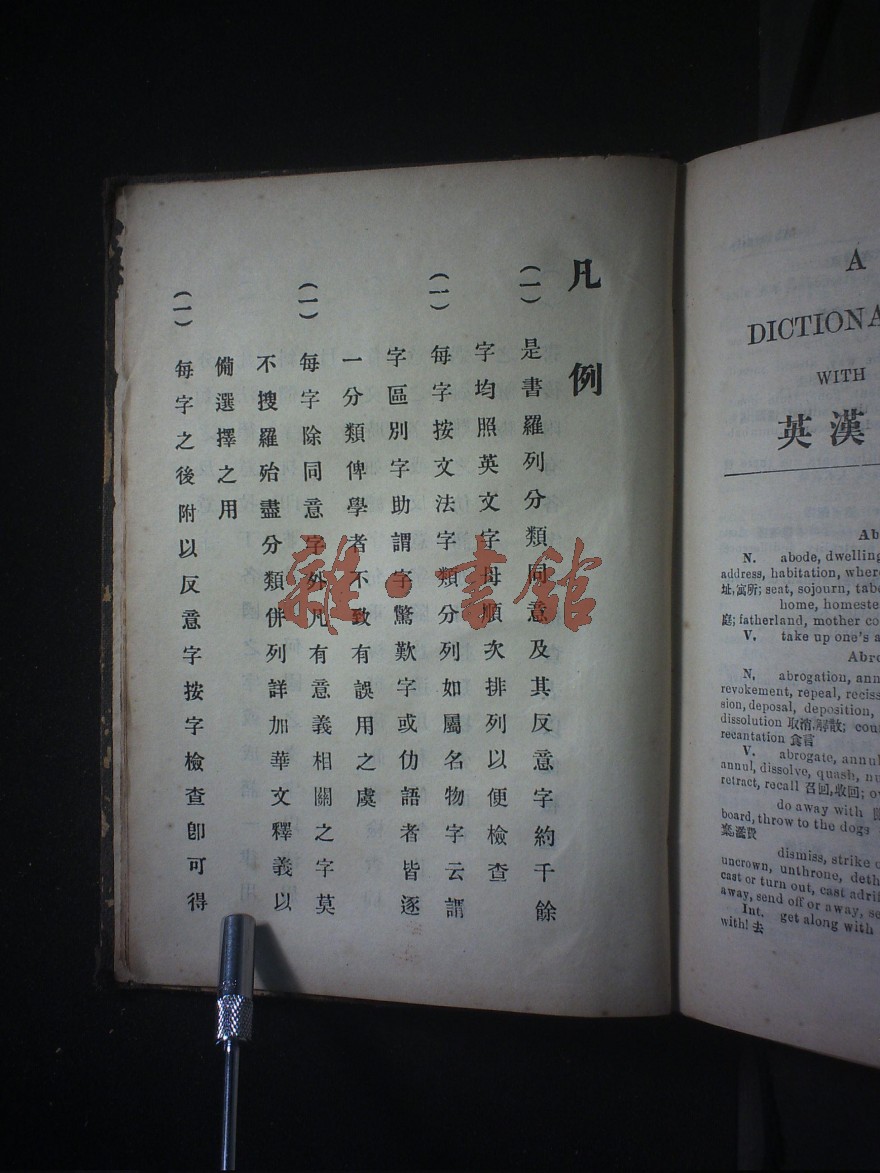 凡例
(一)是書羅列分類同意及其反意字約千餘
字均照英文字母順次排列以便檢查
(一)每字按文法字類分列如屬名物字云謂
字區別字助謂字驚歎字或仂語者皆逐
一分類俾學者不致有誤用之虞
(一)每字除同意字外凡有意義相關之字莫
不搜羅殆盡分類併列詳加華文釋義以
備選擇之用
(一)每字之後附以反意字按字檢查卽可得
雜·書館
A
DICTIONA
WITH
英漢
Ab
N. abode, dwelling
address, habitation, wher
址,寓所; seat, sojourn, tabe
home, homeste
庭; fatherland, mother co
V. take up one's a
Abro
N, abrogation, ann
revokement, repeal, reciss
sion, deposal, deposition,
dissolution 取消,解散; cou
recantation 食言
V. abrogate, annul
annul, dissolve, quash, nu
retract, recall 召回,收回; ov
do away with
board, throw to the dogs
棄,
dismiss, strike o
uncrown, unthrone, deth
cast or turn out, cast adrif
away, send off or away, se
Int. get along with
with! 去